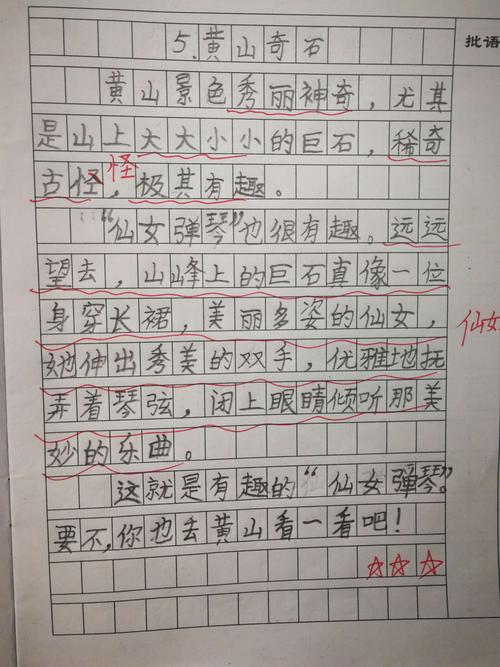 5.黄山奇石
批语
黄山景色秀丽神奇，尤其
是山上大大小小的巨石，稀奇
怪
古怪，极其有趣。
“仙女弹琴”也很有趣。远远
望去，山峰上的巨石真像一位
身穿长裙，美丽多姿的仙女，
仙女
她伸出秀美的双手，优雅地抚
弄着琴弦，闭上眼睛倾听那美
妙的乐曲。
这就是有趣的“仙女弹琴”。
要不，你也去黄山看一看吧！